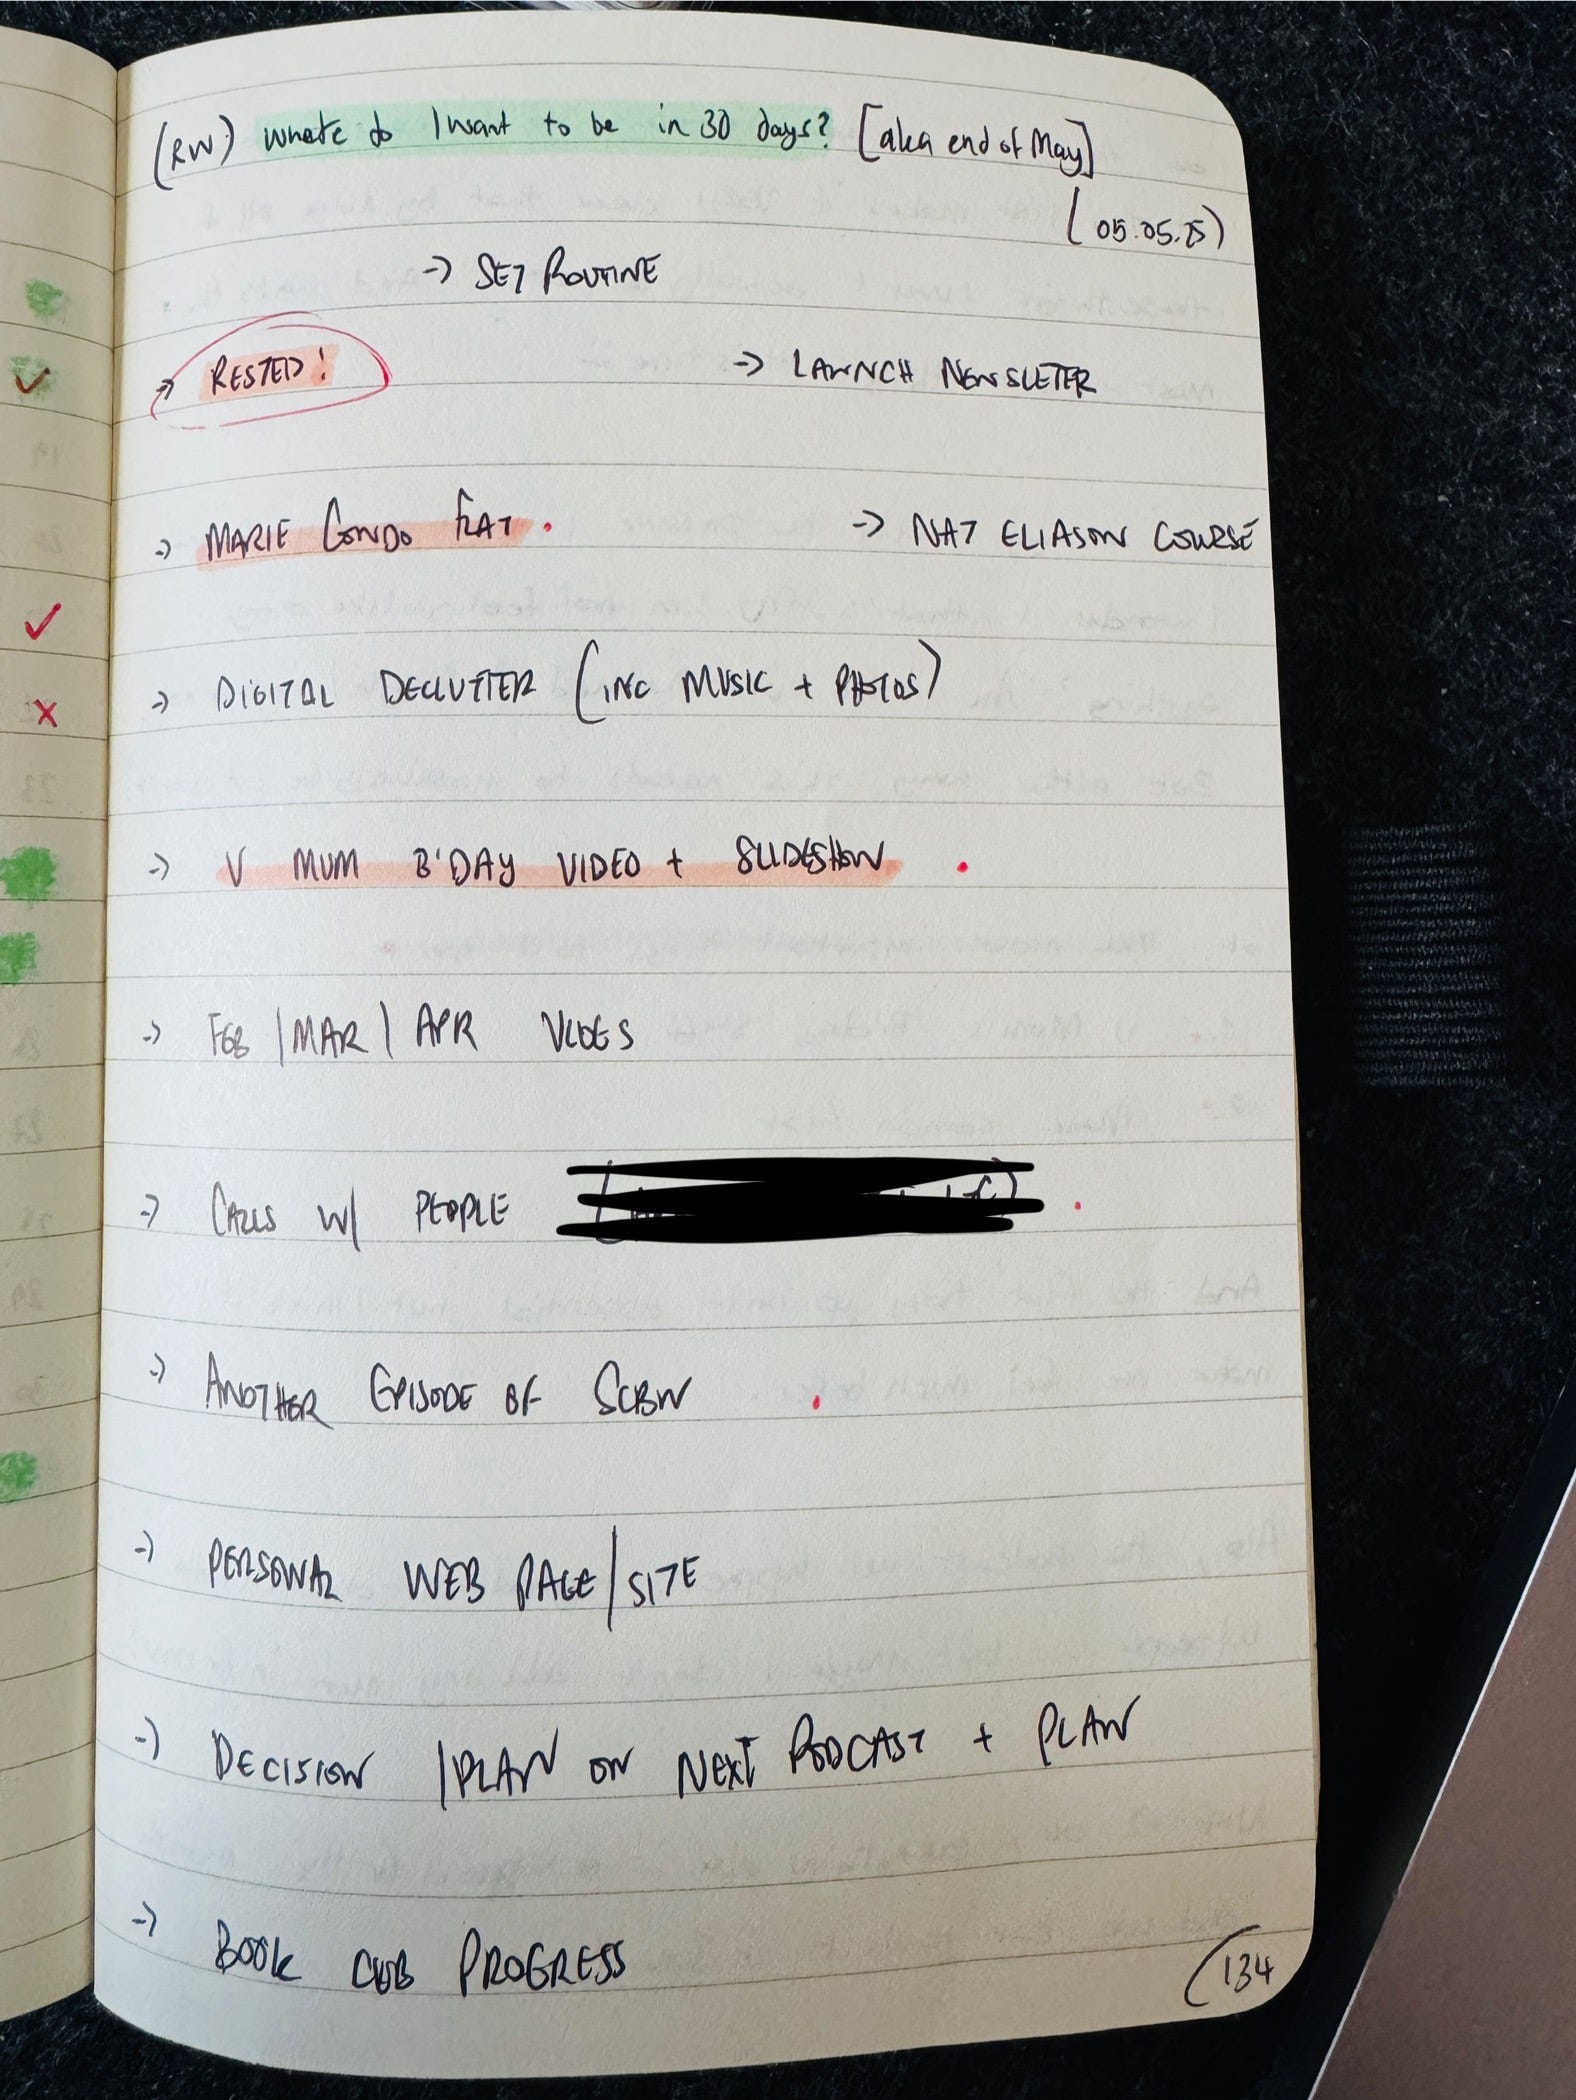 (RW) Where do I want to be in 30 days? [aka end of May]
(05.05.25)
-> SET ROUTINE
-> RESTED!
-> LAWNCH NEWSLETER
-> MARIE CONDO FLAT .
-> NAT ELIASON COURSE
-> DIGITAL DECLUTTER (INC MUSIC + PHOTOS)
-> V MUM B'DAY VIDEO + SLIDESHOW .
-> FEB | MAR | APR VLOGS
-> CALLS W/ PEOPLE .
-> ANOTHER EPISODE OF SCBW .
-> PERSONAL WEB PAGE/SITE
-> DECISION /PLAN ON NEXT PODCAST + PLAN
-> BOOK CLUB PROGRESS
134